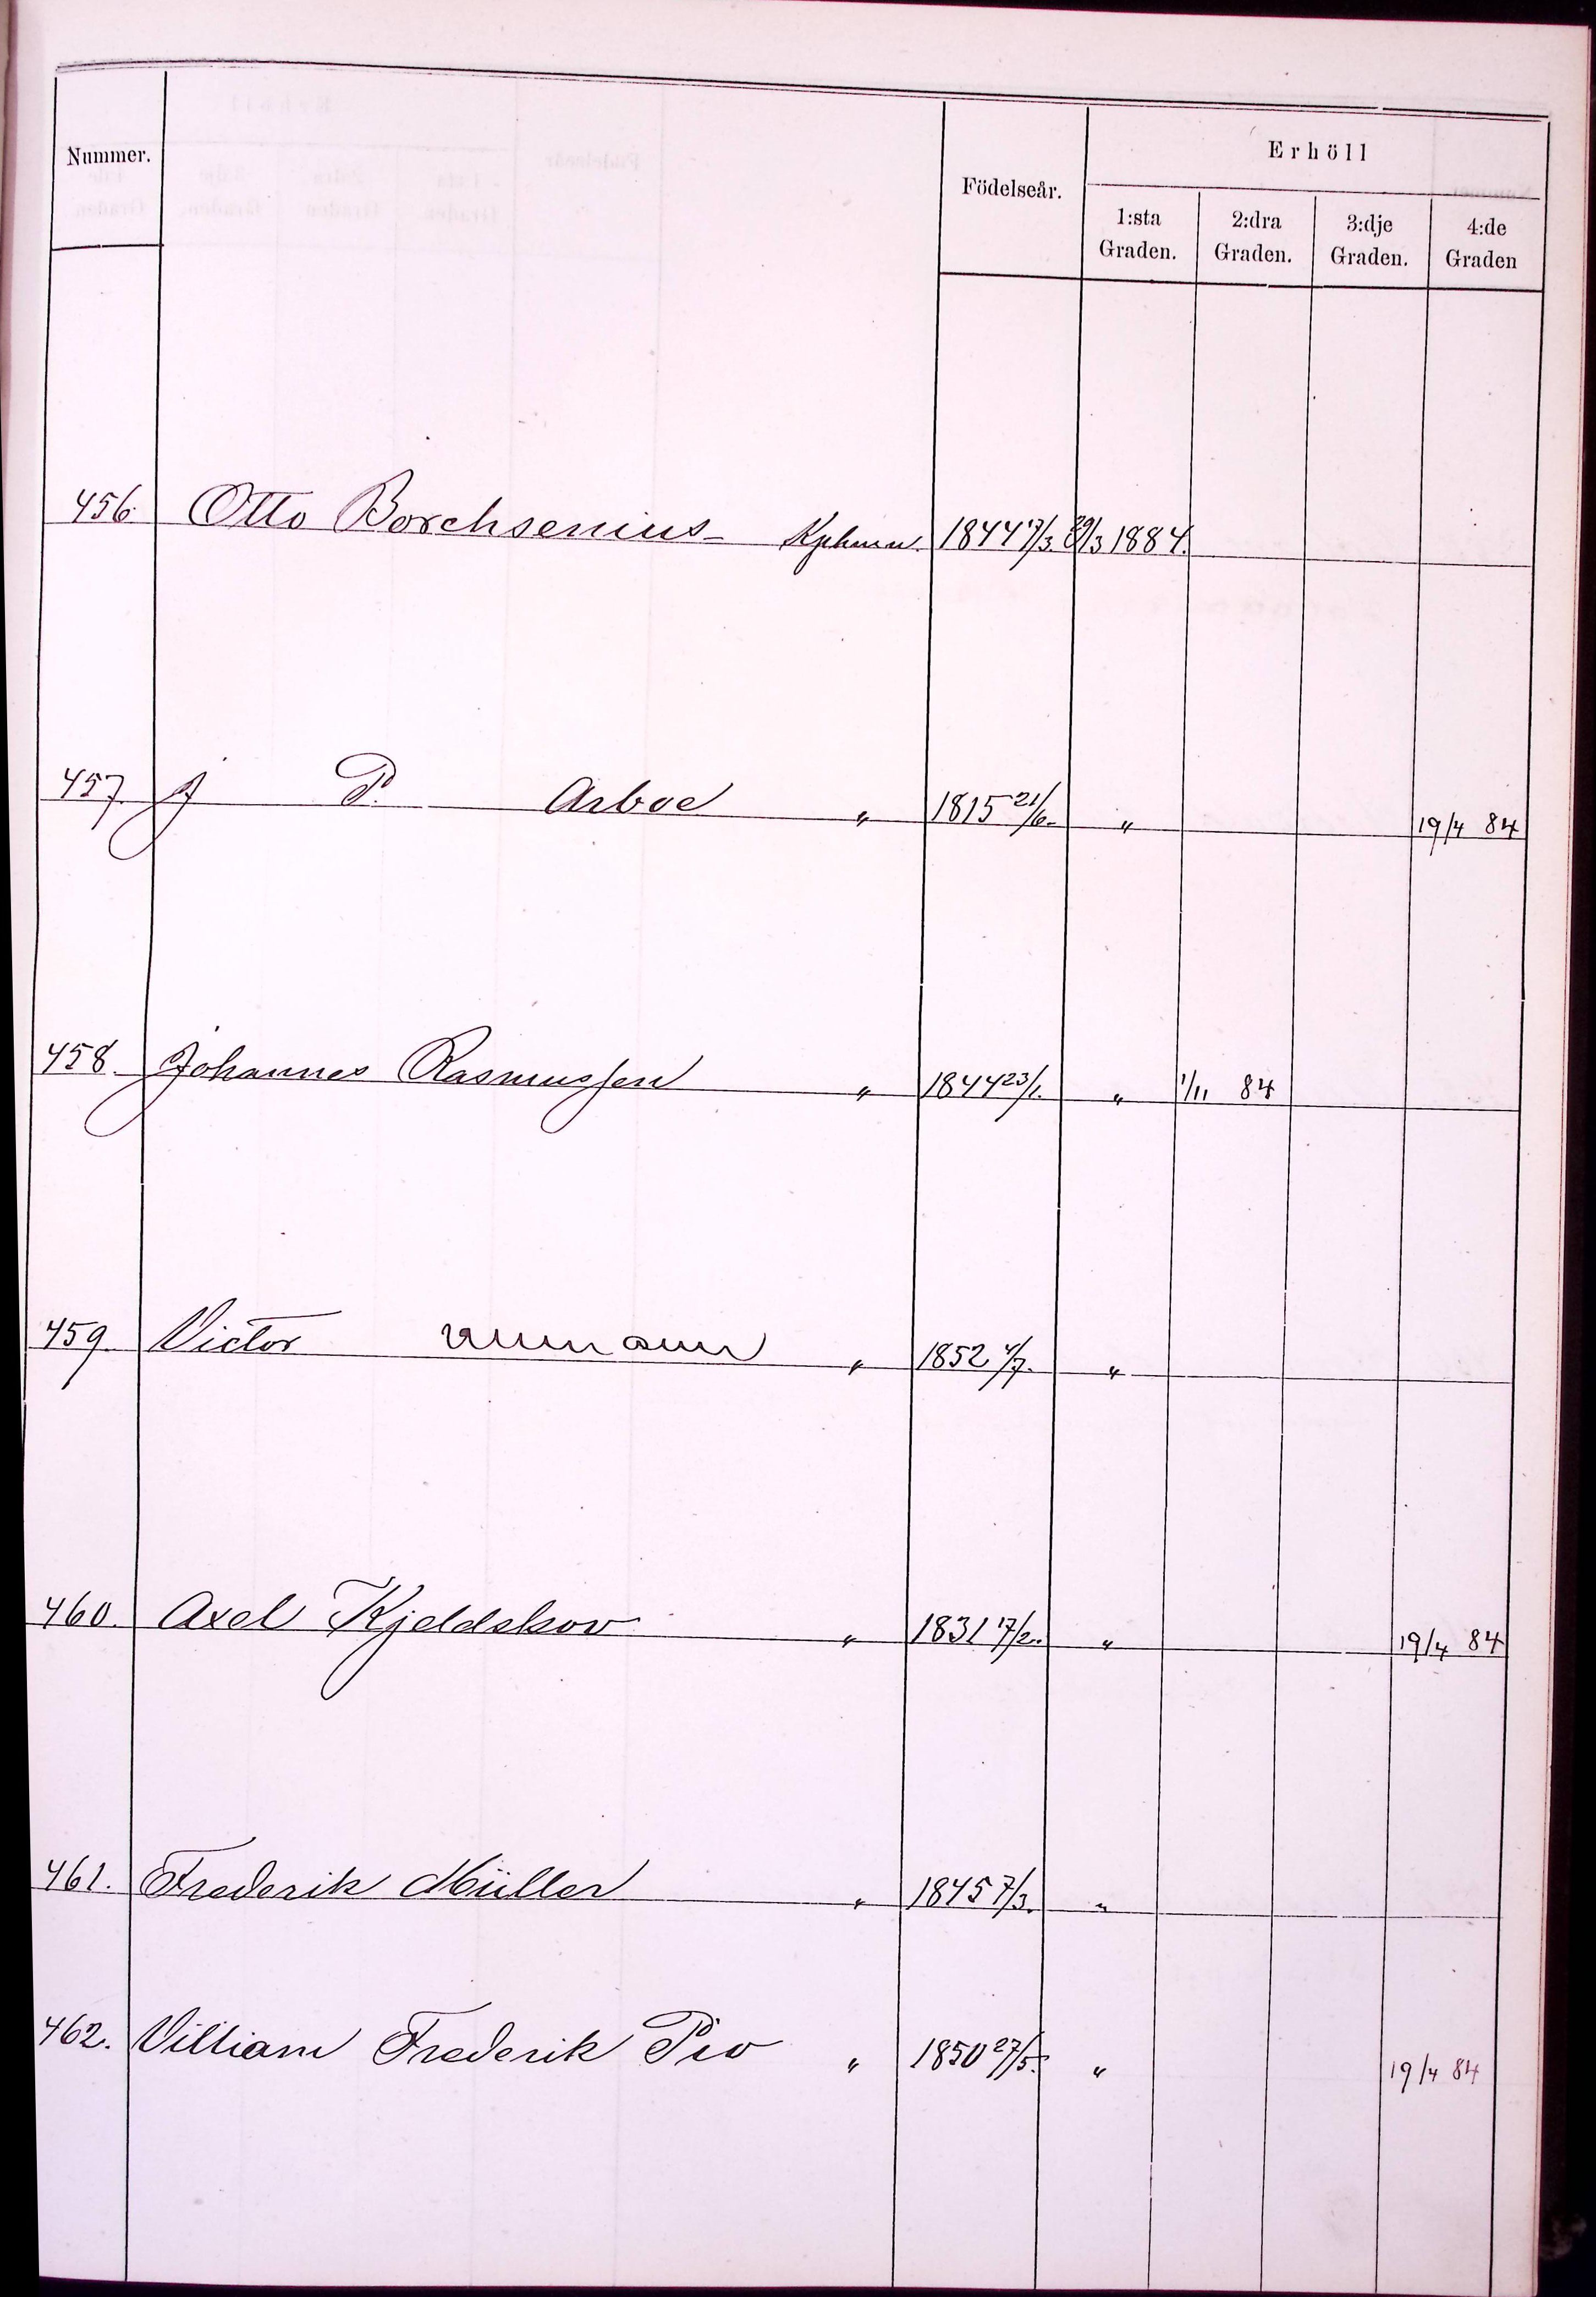 Nummer. Födelseår. Erhöll
1:sta Graden. 2:dra Graden. 3:dje Graden. 4:de Graden
456. Otto Borchsenius Kphmn. 1844 17/3. 29/3 1884.
457. J P. Arboe " 1815 21/6. " 19/4 84
458. Johannes Rasmussen " 1844 23/1. " 1/11 84
459. Victor " 1852 4/7. "
460. Axel Kjeldskov " 1831 17/2. " 19/4 84
461. Frederik Müller " 1845 7/3. "
462. Villiam Frederik Pio " 1850 27/5. " 19/4 84